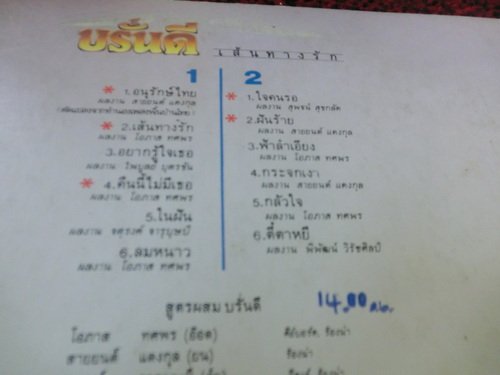 บรั่นดี
เส้นทางรัก
1
* 1.อนุรักษ์ไทย
ผลงาน สายยนต์ แดงกุล
* 2.เส้นทางรัก
ผลงาน โอภาส ทศพร
3.อยากรู้ใจเธอ
ผลงาน ไพบูลย์ บุตรขัน
* 4.คืนนี้ไม่มีเธอ
ผลงาน โอภาส ทศพร
5.ในฝัน
ผลงาน จตุรงค์ จารุบุษป์
6.ลมหนาว
ผลงาน โอภาส ทศพร
2
* 1.ใจคนรอ
ผลงาน สุพจน์ สุขกลัด
* 2.ฝันร้าย
ผลงาน สายยนต์ แดงกุล
3.ฟ้าลำเอียง
ผลงาน โอภาส ทศพร
4.กระจกเงา
ผลงาน สายยนต์ แดงกุล
5.กลัวใจ
ผลงาน โอภาส ทศพร
6.ตี๋ตาหยี
ผลงาน พิพัฒน์ วิรัชศิลป์
สูตรผสม บรั่นดี
14.00 ศน.
โอภาส ทศพร (อ๊อด) คีย์บอร์ด, ร้องนำ
สายยนต์ แดงกุล (ยน) ร้องนำ